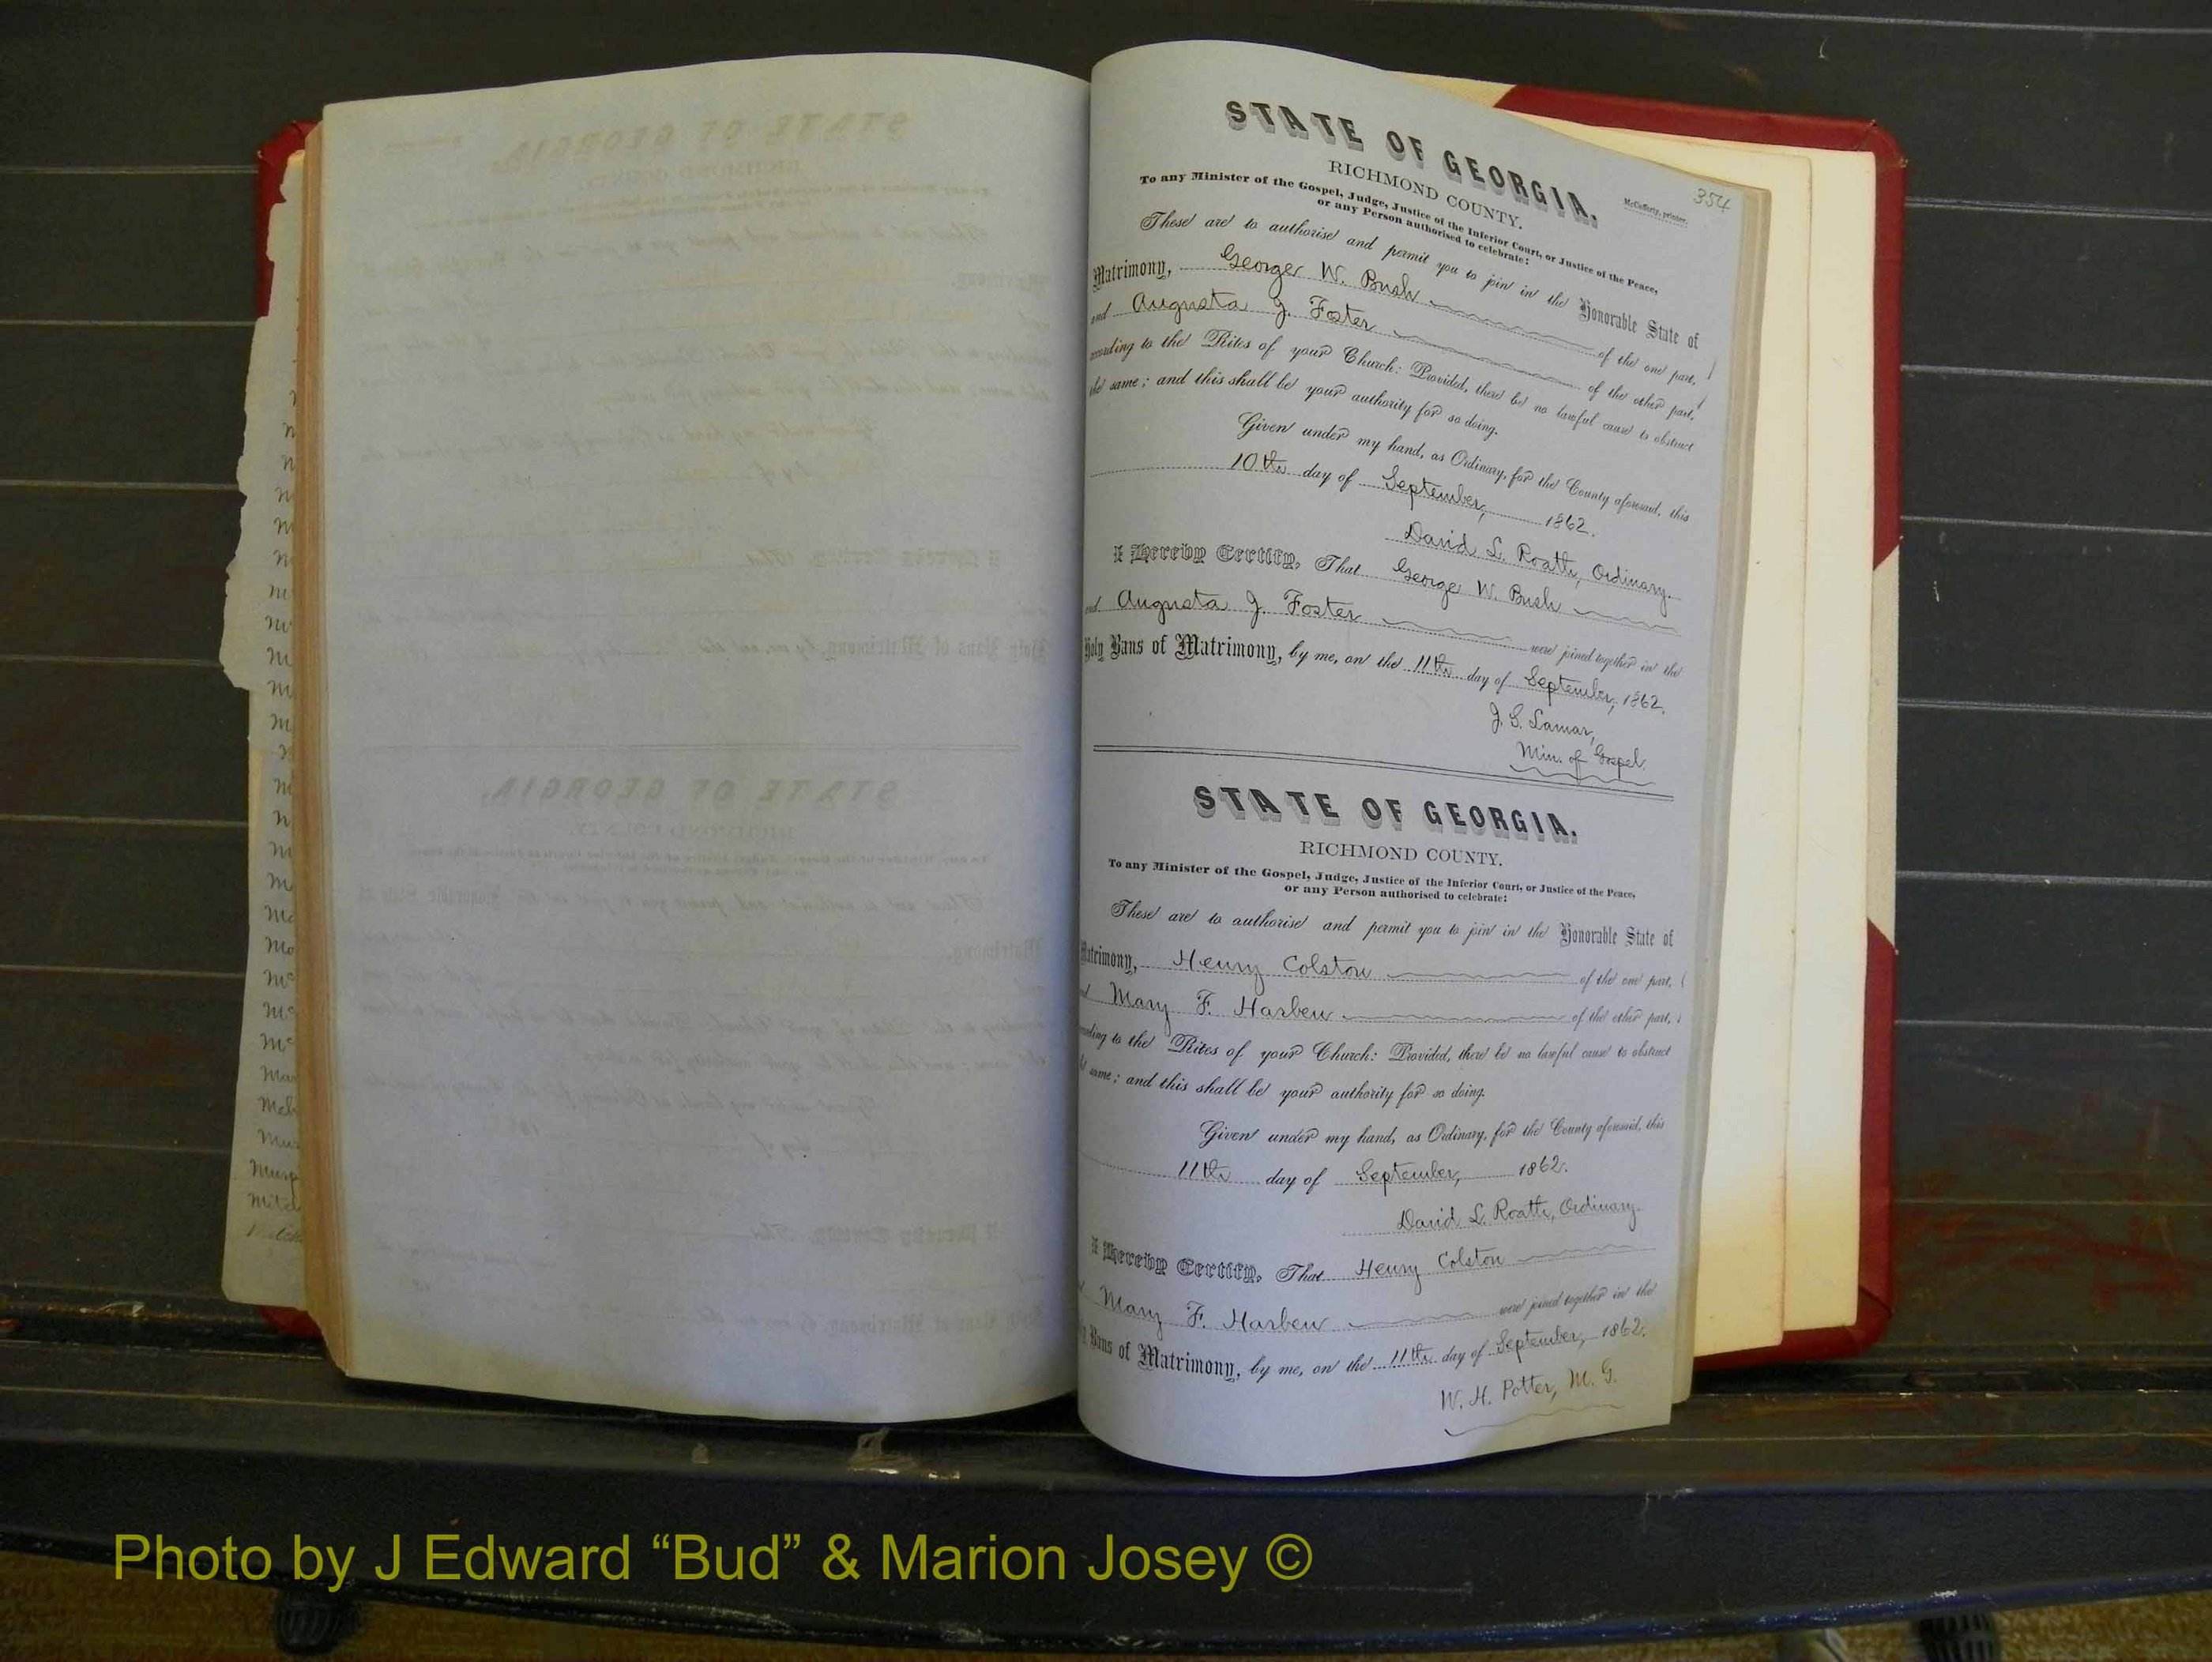 STATE OF GEORGIA.
354
McCafferty, printer.
RICHMOND COUNTY.
To any Minister of the Gospel, Judge, Justice of the Inferior Court, or Justice of the Peace,
or any Person authorised to celebrate:
These are to authorise and permit you to join in the Honorable State of
Matrimony, George W. Bush of the one part,
and Augusta J. Foster of the other part,
according to the Rites of your Church: Provided, there be no lawful cause to obstruct
the same; and this shall be your authority for so doing.
Given under my hand, as Ordinary, for the County aforesaid, this
10th day of September, 1862.
David L. Roath, Ordinary.
I Hereby Certify, That George W. Bush
and Augusta J. Foster were joined together in the
Holy Bans of Matrimony, by me, on the 11th day of September, 1862.
J. S. Lamar,
Min. of Gospel.
STATE OF GEORGIA.
RICHMOND COUNTY.
To any Minister of the Gospel, Judge, Justice of the Inferior Court, or Justice of the Peace,
or any Person authorised to celebrate:
These are to authorise and permit you to join in the Honorable State of
Matrimony, Henry Colston of the one part,
Mary F. Harben of the other part,
according to the Rites of your Church: Provided, there be no lawful cause to obstruct
same; and this shall be your authority for so doing.
Given under my hand, as Ordinary, for the County aforesaid, this
11th day of September, 1862.
David L. Roath, Ordinary.
I Hereby Certify, That Henry Colston
Mary F. Harben were joined together in the
Bans of Matrimony, by me, on the 11th day of September, 1862.
W. H. Potter, M. G.
Photo by J Edward “Bud” & Marion Josey ©